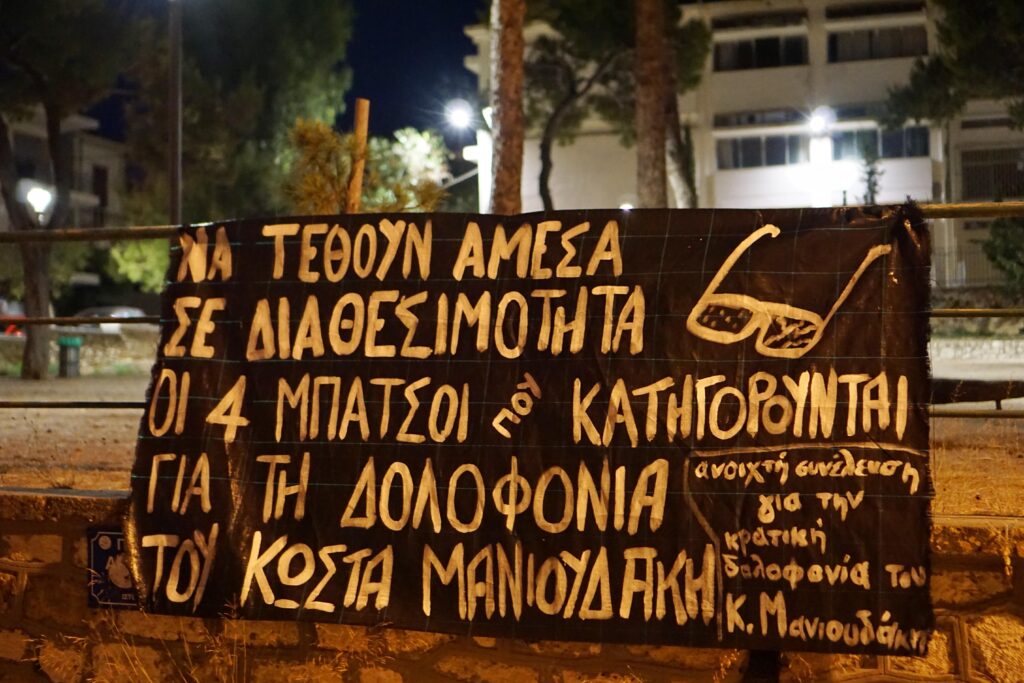 ΝΑ ΤΕΘΟΥΝ ΑΜΕΣΑ
ΣΕ ΔΙΑΘΕΣΙΜΟΤΗΤΑ
ΟΙ 4 ΜΠΑΤΣΟΙ ΠΟΥ ΚΑΤΗΓΟΡΟΥΝΤΑΙ
ΓΙΑ ΤΗ ΔΟΛΟΦΟΝΙΑ
ΤΟΥ ΚΩΣΤΑ ΜΑΝΙΟΥΔΑΚΗ
ανοιχτή συνέλευση
για την
κρατική
δολοφονία του
Κ. Μανιουδάκη